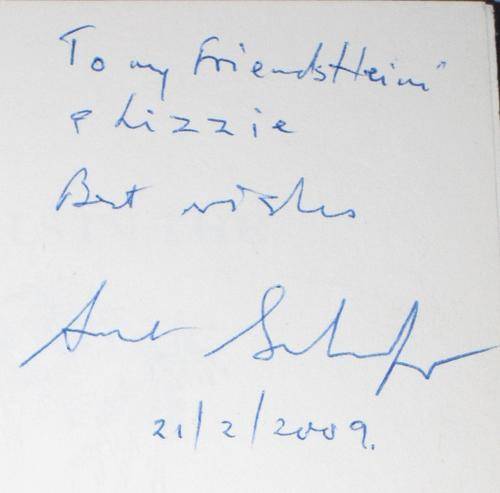 To my Friends Heini
& Lizzie
Best wishes
21/2/2009.